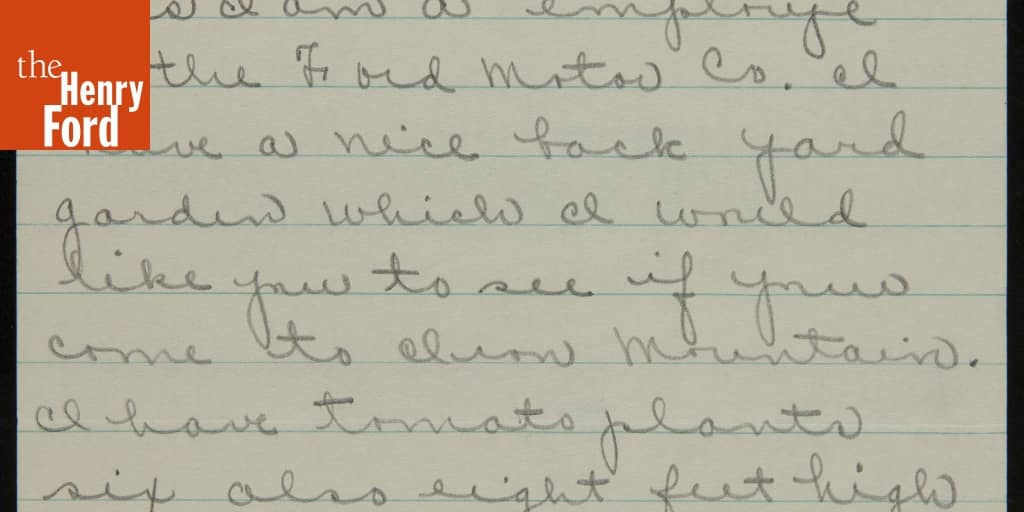 the
Henry
Ford
I am a employe
the Ford Motor Co. I
have a nice back yard
garden which I would
like you to see if you
come to Iron Mountain.
I have tomato plants
six also eight feet high